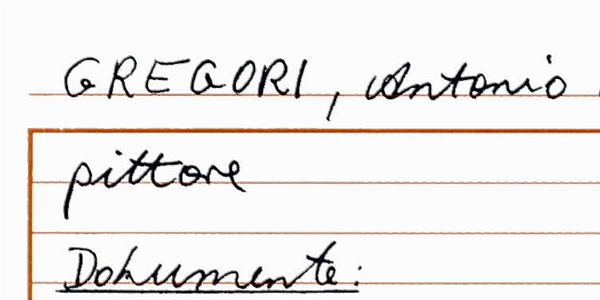 GREGORI, Antonio
pittore
Dokumente: